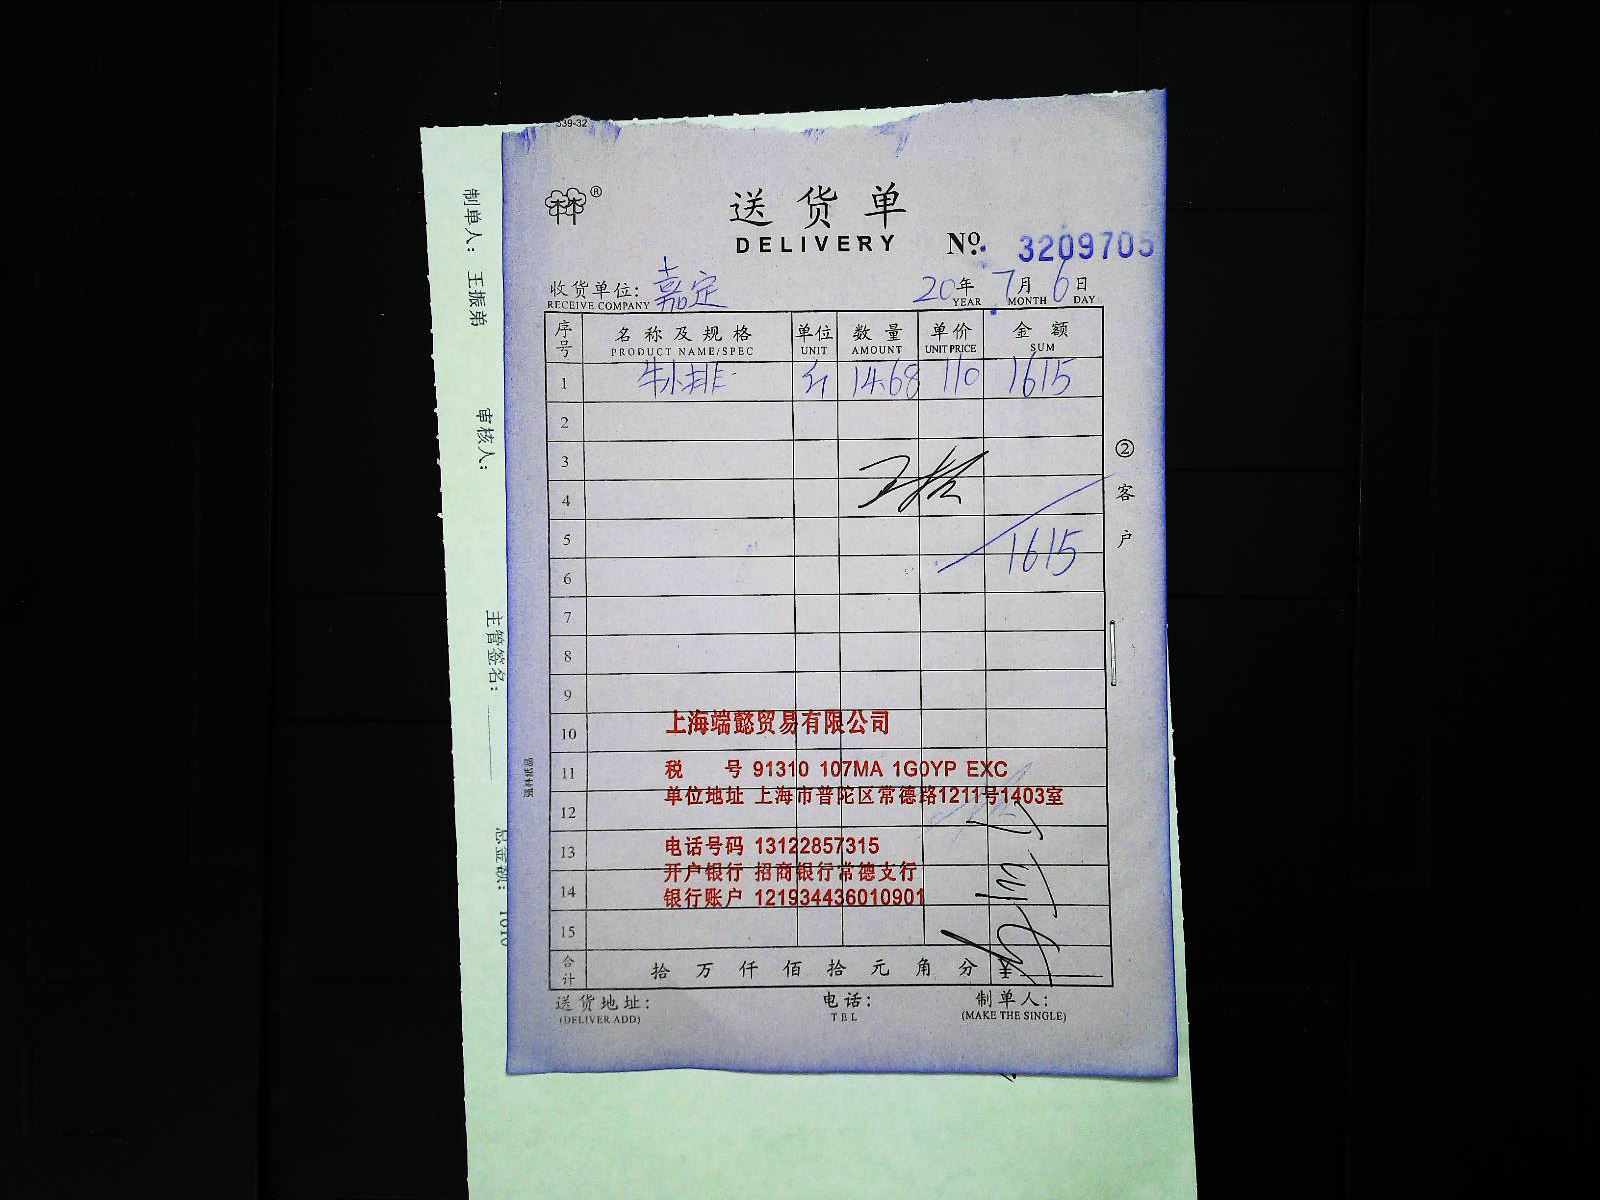 339-32
林®
送货单
DELIVERY
No. 3209705
收货单位: 嘉定 20年 7月 6日
RECEIVE COMPANY YEAR MONTH DAY
序号 名称及规格 单位 数量 单价 金额
PRODUCT NAME/SPEC UNIT AMOUNT UNIT PRICE SUM
1 牛小排 斤 14.68 110 1615
2
3
4
5
1615
6
7
8
9
10
上海端懿贸易有限公司
11 税 号 91310 107MA 1G0YP EXC
单位地址 上海市普陀区常德路1211号1403室
12
13 电话号码 13122857315
开户银行 招商银行常德支行
14 银行账户 121934436010901
15
合计 拾 万 仟 佰 拾 元 角 分 ¥
送货地址: 电话: 制单人:
(DELIVER ADD) TEL (MAKE THE SINGLE)
②客户
制单人: 王振弟
审核人:
主管签名:
总金额: